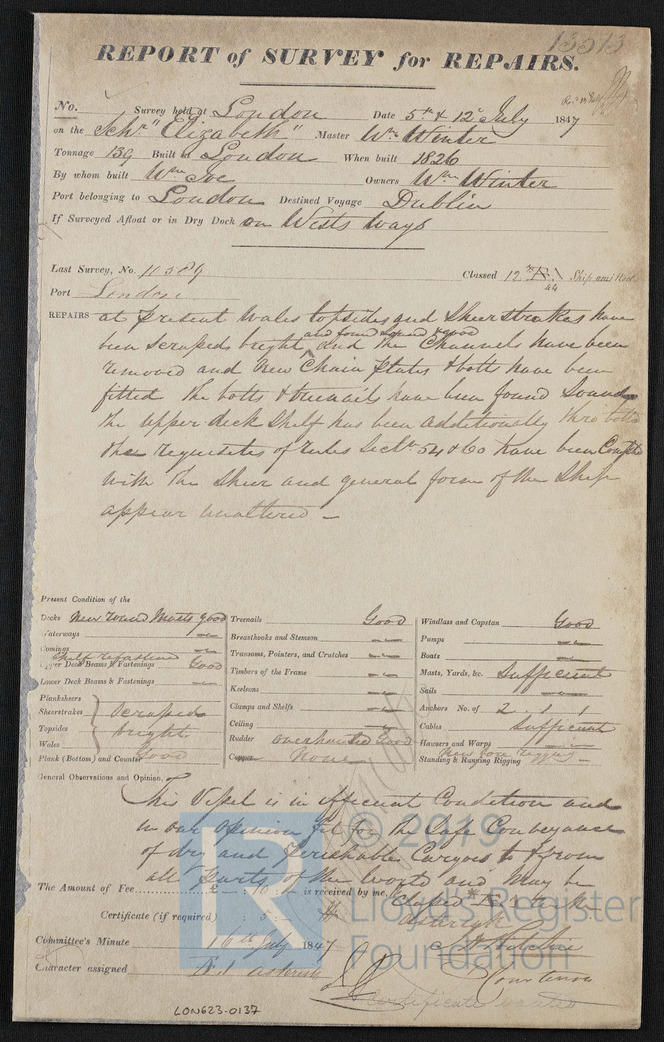 13513
REPORT of SURVEY for REPAIRS.
No. Survey held at London Date 5th & 12th July 1847
on the Schr "Elizabeth" Master Wm Winter
Tonnage 139 Built at London When built 1826
By whom built Wm Owners Wm Winter
Port belonging to London Destined Voyage Dublin
If Surveyed Afloat or in Dry Dock on Wests Ways
Last Survey, No. 11589 Classed 12 44 Ship and Boat
Port London
REPAIRS at present Wales topsides and Sheerstrakes have
been scraped bright and found sound & good and the Channels have been
removed and New Chain plates & bolts have been
fitted The bolts & treenails have been found Sound
The upper deck Shelf has been additionally thro bolted
The requisites of rules Sectn 54 & 60 have been
with The Sheer and general form of the Ship
appear unaltered —
Present Condition of the
Decks New round Masts good Treenails Good Windlass and Capstan Good
Waterways Breasthooks and Stemson Pumps
Comings Transoms, Pointers, and Crutches Boats
Upper Deck Beams & Fastenings Shelf refastened Good Timbers of the Frame Masts, Yards, &c. Sufficient
Lower Deck Beams & Fastenings Keelsons Sails
Planksheers Clamps and Shelfs Anchors No. of 2 . 1 . 1
Sheerstrakes Scraped Ceiling Cables Sufficient
Topsides bright Rudder overhauled Good Hawsers and Warps
Wales Copper None Standing & Running Rigging
Plank (Bottom) and Counter Good
General Observations and Opinion,
This Vessel is in efficient Condition and
in our opinion fit for the Safe Conveyance
of dry and Perishable Cargoes to & from
all parts of the World and May be
The Amount of Fee £ is received by me, Classed
Certificate (if required) : 5 : asterisk
Committee's Minute 16th July 1847
Character assigned asterisk Courtenay
Certificate wanted
LON623-0137
© 2019
Lloyd's Register
Foundation